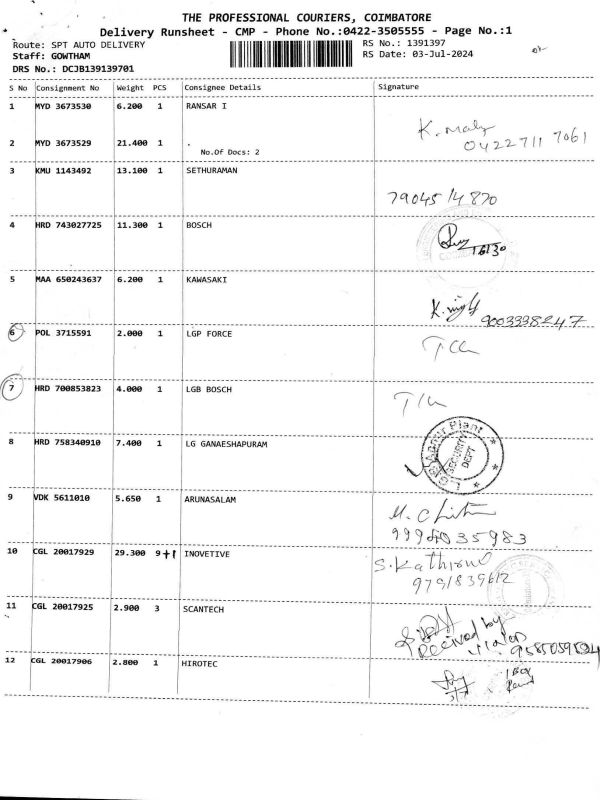 THE PROFESSIONAL COURIERS, COIMBATORE
Delivery Runsheet - CMP - Phone No.:0422-3505555 - Page No.:1
Route: SPT AUTO DELIVERY RS No.: 1391397
Staff: GOWTHAM RS Date: 03-Jul-2024
DRS No.: DCJB139139701
S No Consignment No Weight PCS Consignee Details Signature
1 MYD 3673530 6.200 1 RANSAR I
2 MYD 3673529 21.400 1 .
No.Of Docs: 2
04227117061
3 KMU 1143492 13.100 1 SETHURAMAN
7904514870
4 HRD 743027725 11.300 1 BOSCH
5 MAA 650243637 6.200 1 KAWASAKI
9003338247
6 POL 3715591 2.000 1 LGP FORCE
7 HRD 700853823 4.000 1 LGB BOSCH
8 HRD 758340910 7.400 1 LG GANAESHAPURAM
Plant
SECURITY
DEPT
9 VDK 5611010 5.650 1 ARUNASALAM
10 CGL 20017929 29.300 9+1 INOVETIVE
9791839612
11 CGL 20017925 2.900 3 SCANTECH
Received by
12 CGL 20017906 2.800 1 HIROTEC
1 Box